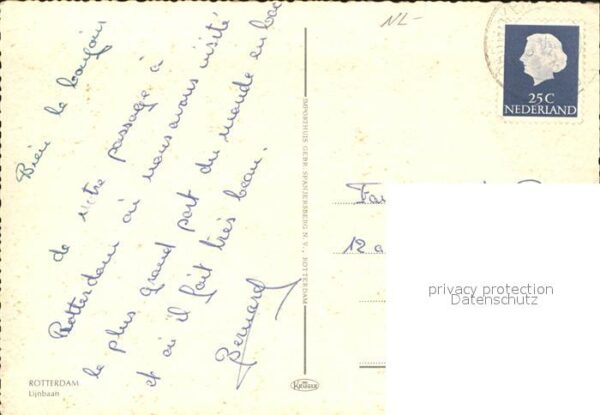 NL-
Bien le bonjour
de notre passage à
Rotterdam où nous avons visité
le plus grand port du monde en bac
et où il fait très beau.
Bernard
ROTTERDAM
Lijnbaan
IMPORTHUIS GEBR. SPANJERSBERG N.V., ROTTERDAM
KRÜGER
25C
NEDERLAND
12
privacy protection
Datenschutz